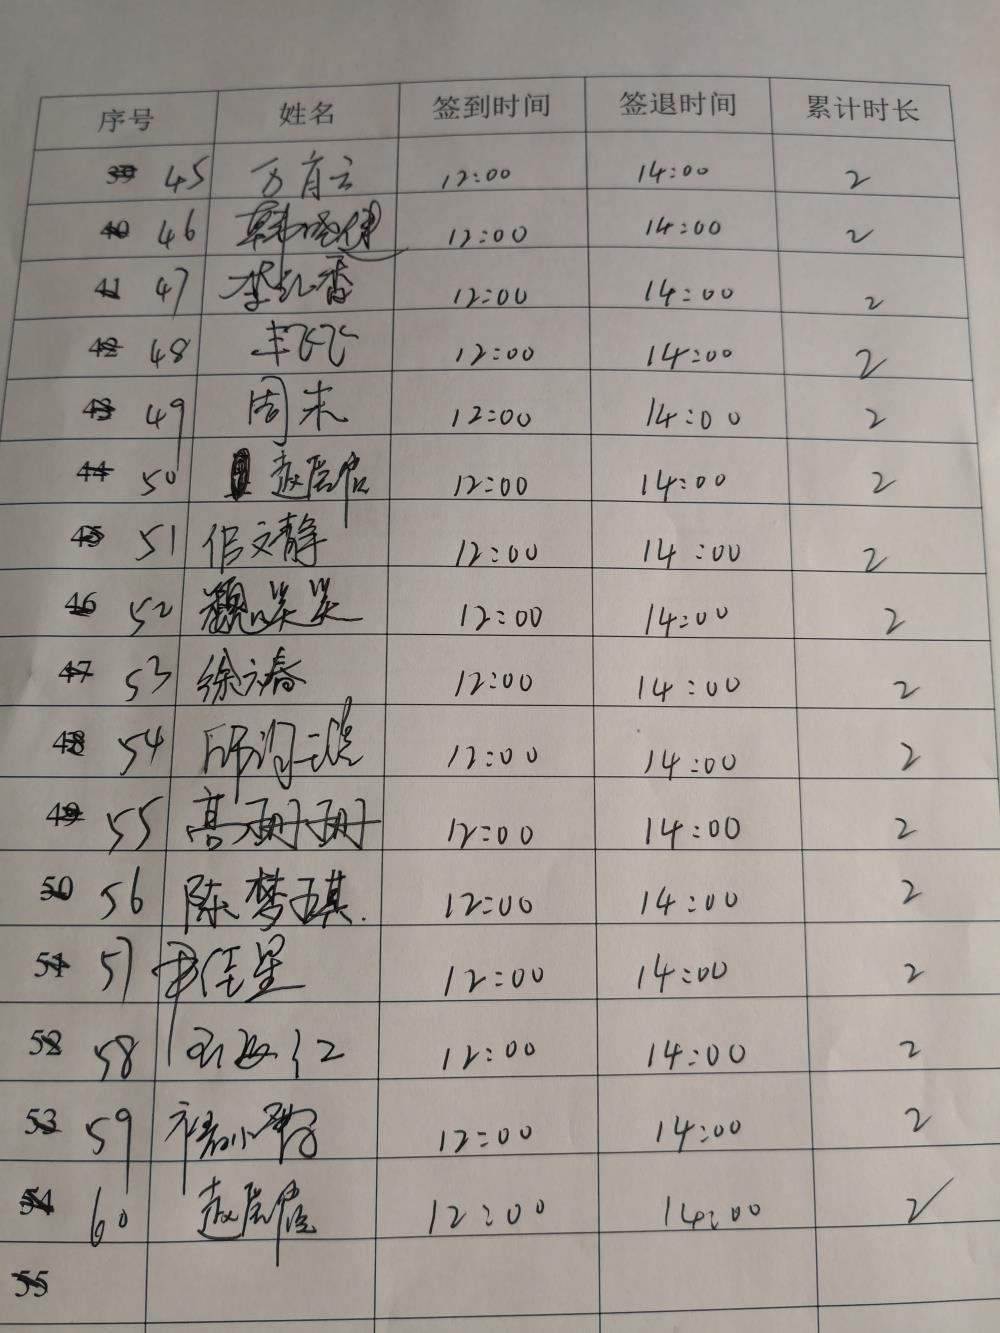 序号 姓名 签到时间 签退时间 累计时长
39 45 万育云 12:00 14:00 2
40 46 韩晓健 12:00 14:00 2
41 47 李红香 12:00 14:00 2
42 48 丰飞飞 12:00 14:00 2
43 49 周末 12:00 14:00 2
44 50 赵 12:00 14:00 2
45 51 侣文静 12:00 14:00 2
46 52 魏笑笑 12:00 14:00 2
47 53 徐立春 12:00 14:00 2
48 54 12:00 14:00 2
49 55 高珊珊 12:00 14:00 2
50 56 陈梦琪. 12:00 14:00 2
51 57 尹佳星 12:00 14:00 2
52 58 12:00 14:00 2
53 59 12:00 14:00 2
54 60 赵 12:00 14:00 2
55